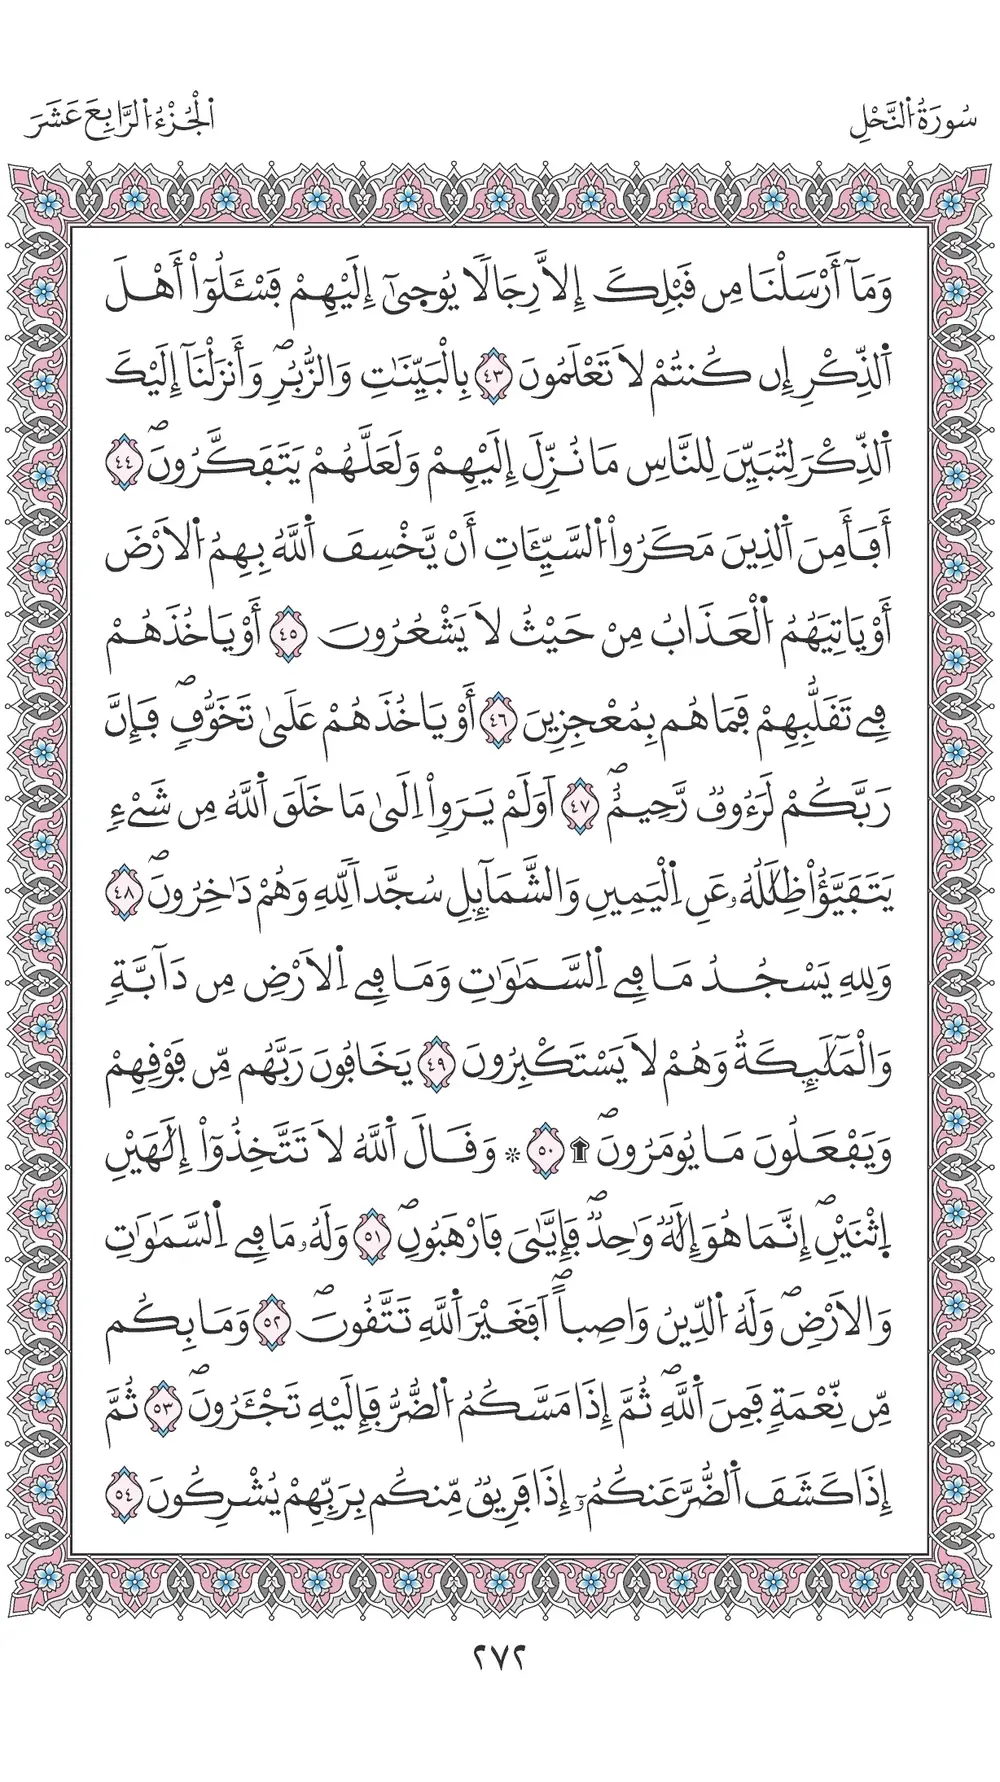 سُورَةُ اُ۬لنَّحْلِ
اَ۬لْجُزْءُ اُ۬لرَّابِعَ عَشَرَ
وَمَآ أَرْسَلْنَا مِن قَبْلِكَ إِلاَّ رِجَالاٗ يُوح۪ىٰٓ إِلَيْهِمْ فَسْـَٔلُوٓاْ أَهْلَ
اَ۬لذِّكْرِ إِن كُنتُمْ لَا تَعْلَمُونَ ٤٣ بِالْبَيِّنَٰتِ وَالزُّبُرِۖ وَأَنزَلْنَآ إِلَيْكَ
اَ۬لذِّكْرَ لِتُبَيِّنَ لِلنَّاسِ مَا نُزِّلَ إِلَيْهِمْ وَلَعَلَّهُمْ يَتَفَكَّرُونَۖ ٤٤
أَفَأَمِنَ اَ۬لذِينَ مَكَرُواْ اُ۬لسَّيِّـَٔاتِ أَنْ يَّخْسِفَ اَ۬للَّهُ بِهِمُ اُ۬لَارْضَ
أَوْ يَاتِيَهُمُ اُ۬لْعَذَابُ مِنْ حَيْثُ لَا يَشْعُرُونَ ٤٥ أَوْ يَاخُذَهُمْ
فِے تَقَلُّبِهِمْ فَمَا هُم بِمُعْجِزِينَ ٤٦ أَوْ يَاخُذَهُمْ عَلَىٰ تَخَوُّفٖۖ فَإِنَّ
رَبَّكُمْ لَرَءُوفٞ رَّحِيمٌۖ ٤٧ اَوَلَمْ يَرَوِاْ اِلَىٰ مَا خَلَقَ اَ۬للَّهُ مِن شَےْءٖ
يَتَفَيَّؤُاْ ظِلَٰلُهُۥ عَنِ اِ۬لْيَمِينِ وَالشَّمَآئِلِ سُجَّداٗ لِّلهِ وَهُمْ دَٰخِرُونَۖ ٤٨
وَلِلهِ يَسْجُدُ مَا فِے اِ۬لسَّمَٰوَٰتِ وَمَا فِے اِ۬لَارْضِ مِن دَآبَّةٖ
وَالْمَلَٰٓئِكَةُ وَهُمْ لَا يَسْتَكْبِرُونَ ٤٩ يَخَافُونَ رَبَّهُم مِّن فَوْقِهِمْ
وَيَفْعَلُونَ مَا يُومَرُونَۖ ۩ ٥٠ * وَقَالَ اَ۬للَّهُ لَا تَتَّخِذُوٓاْ إِلَٰهَيْنِ
اِ۪ثْنَيْنِۖ إِنَّمَا هُوَ إِلَٰهٞ وَٰحِدٞۖ فَإِيَّٰىَ فَارْهَبُونِۖ ٥١ وَلَهُۥ مَا فِے اِ۬لسَّمَٰوَٰتِ
وَالَارْضِۖ وَلَهُ اُ۬لدِّينُ وَاصِباًۖ اَفَغَيْرَ اَ۬للَّهِ تَتَّقُونَۖ ٥٢ وَمَا بِكُم
مِّن نِّعْمَةٖ فَمِنَ اَ۬للَّهِۖ ثُمَّ إِذَا مَسَّكُمُ اُ۬لضُّرُّ فَإِلَيْهِ تَجْـَٔرُونَۖ ٥٣ ثُمَّ
إِذَا كَشَفَ اَ۬لضُّرَّ عَنكُمُۥٓ إِذَا فَرِيقٞ مِّنكُم بِرَبِّهِمْ يُشْرِكُونَ ٥٤
٢٧٢